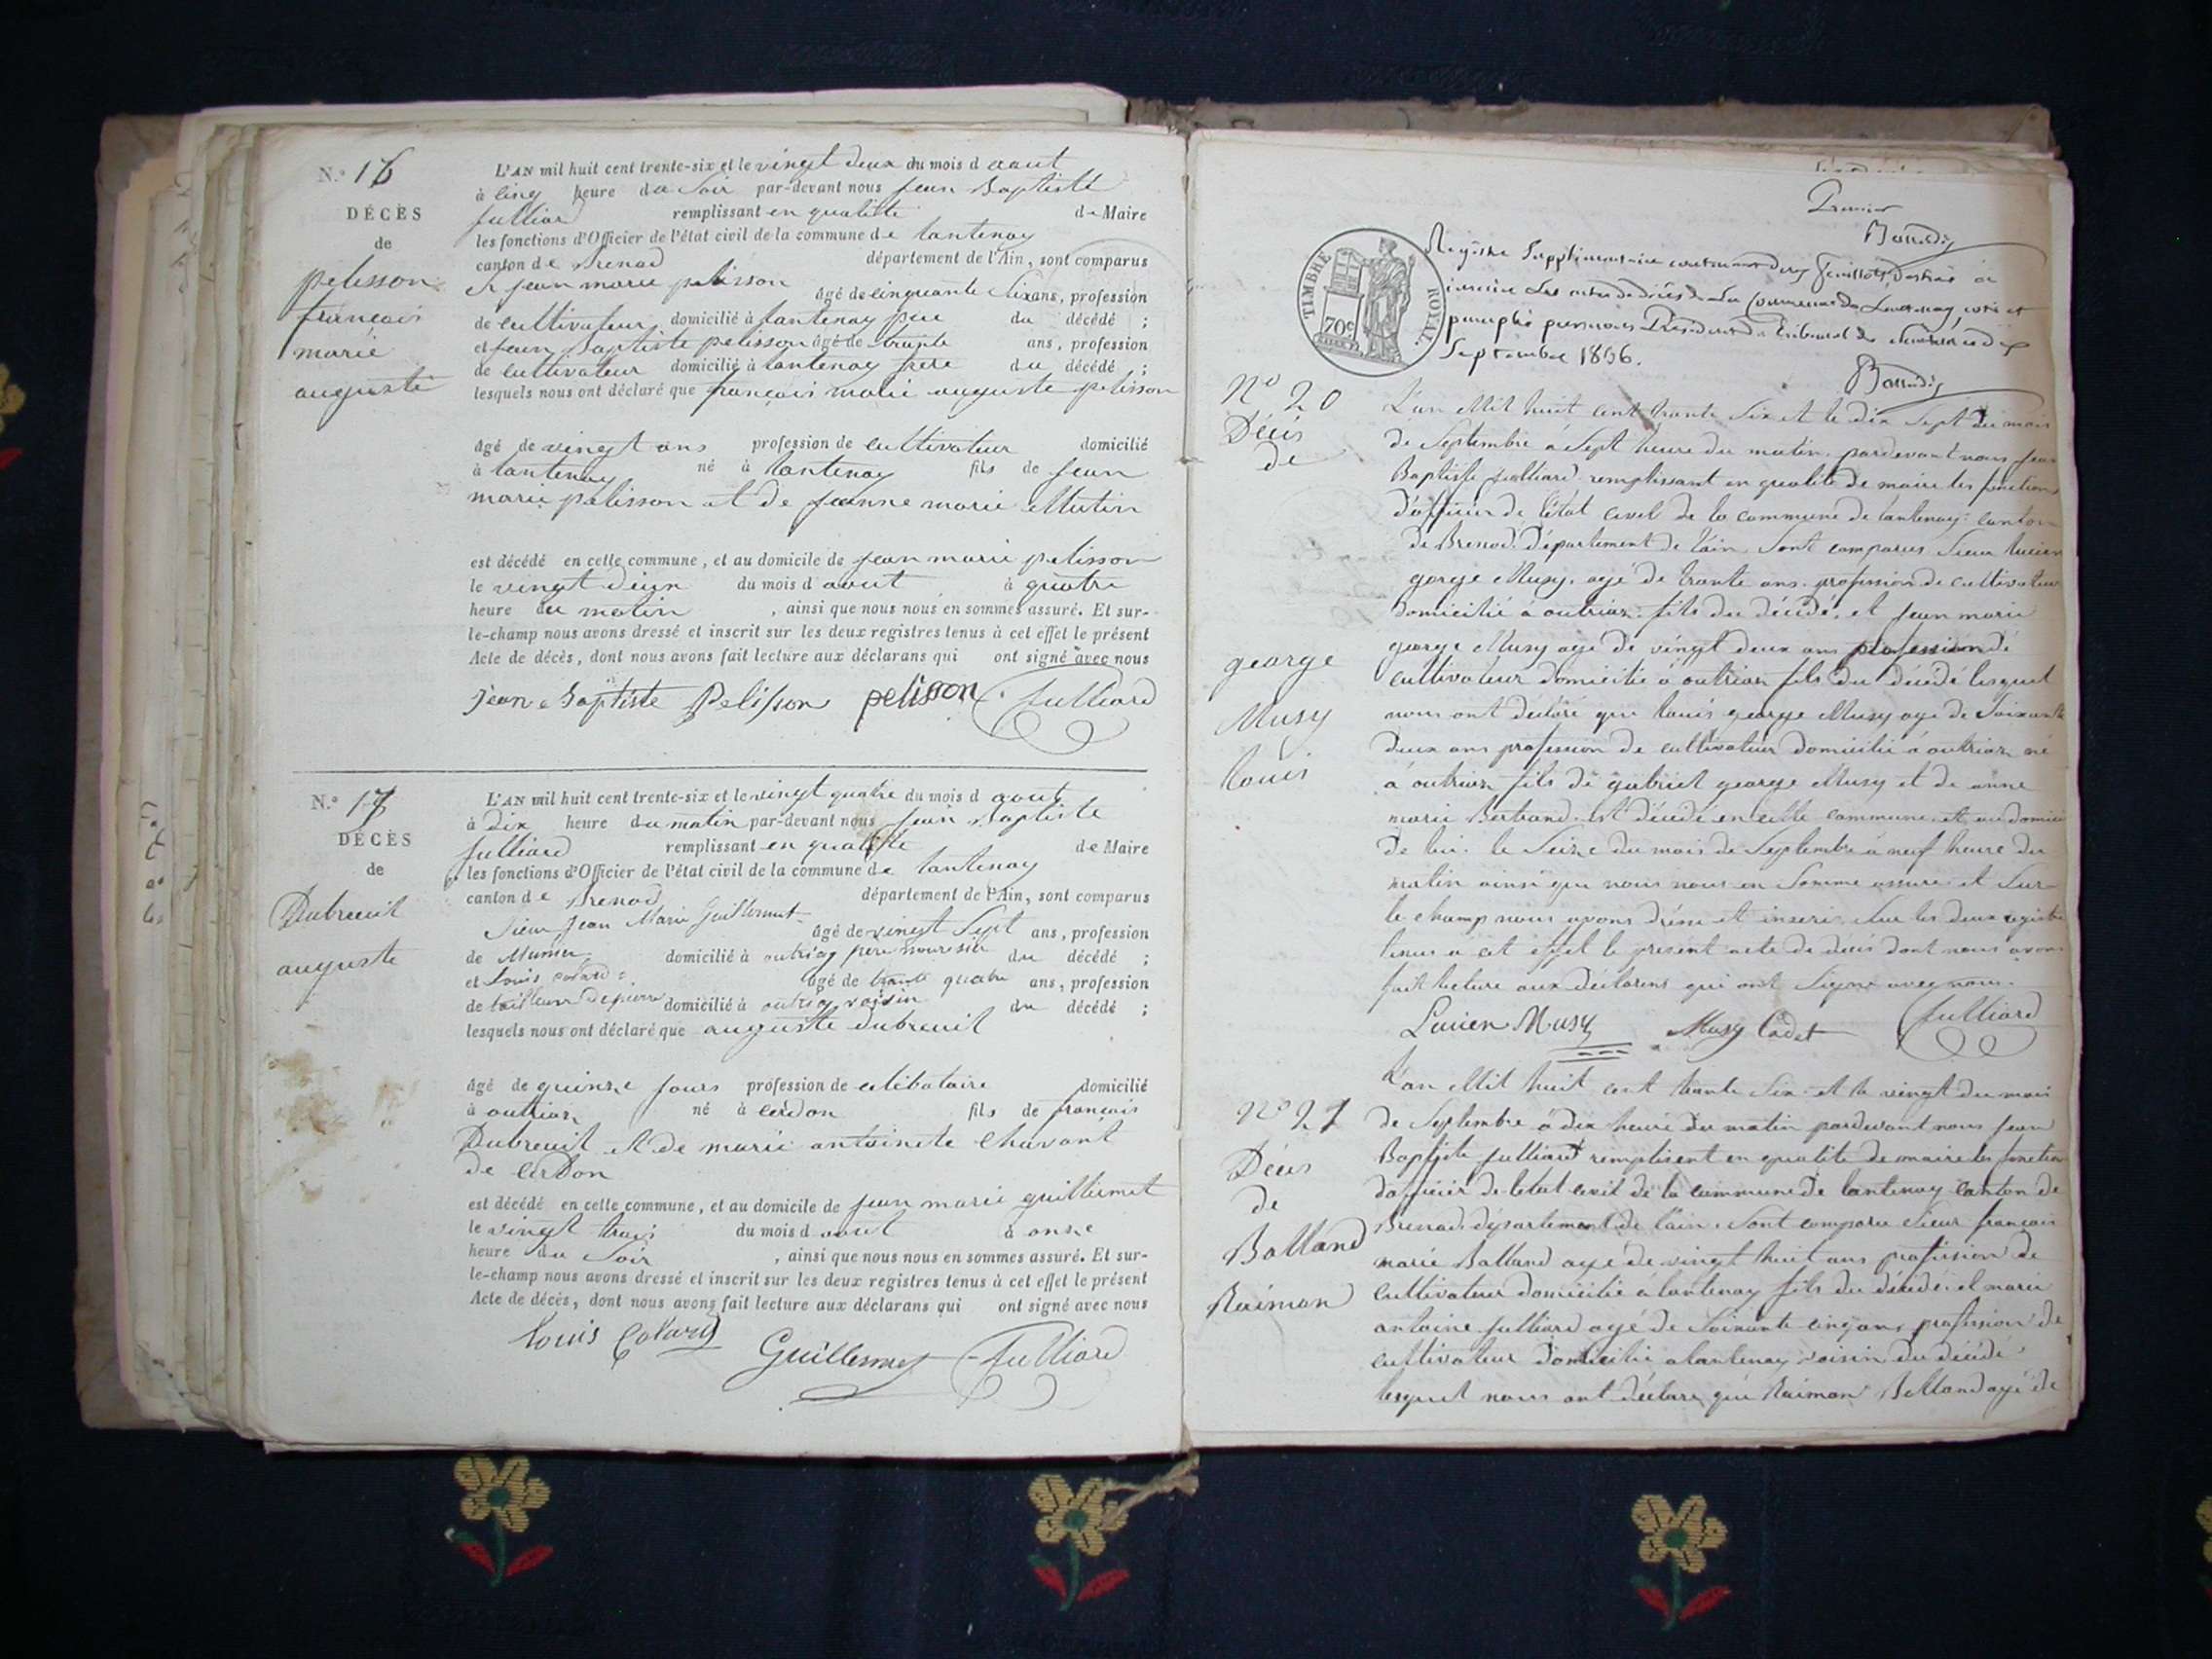 N.º 16
DÉCÈS
de
pelisson
francois
marie
auguste
L'AN mil huit cent trente-six et le vingt deux du mois d aout
à cinq heure du Soir par-devant nous jean Baptiste
julliard remplissant en qualitté de Maire
les fonctions d'Officier de l'état civil de la commune de lantenay
canton de Brenod département de l'Ain, sont comparus
jean marie pelisson âgé de cinquante Six ans, profession
de cultivateur domicilié à lantenay pere du décédé ;
et jean Baptiste pelisson âgé de trente ans, profession
de cultivateur domicilié à lantenay frere du décédé ;
lesquels nous ont déclaré que françois marie auguste pelisson
âgé de vingt ans profession de cultivateur domicilié
à lantenay né à lantenay fils de jean
marie pelisson et de jeanne marie Mutin
est décédé en cette commune, et au domicile de jean marie pelisson
le vingt deux du mois d aout à quatre
heure du matin , ainsi que nous nous en sommes assuré. Et sur-
le-champ nous avons dressé et inscrit sur les deux registres tenus à cet effet le présent
Acte de décès, dont nous avons fait lecture aux déclarans qui ont signé avec nous
jean Baptiste Pelisson pelisson julliard
N.º 17
DÉCÈS
de
Dubreuil
auguste
L'AN mil huit cent trente-six et le vingt quatre du mois d aout
à dix heure du matin par-devant nous jean Baptiste
julliard remplissant en qualitte de Maire
les fonctions d'Officier de l'état civil de la commune de lantenay
canton de Brenod département de l'Ain, sont comparus
Sieur Jean Marie Guillermet âgé de vingt Sept ans, profession
de domicilié à outriaz pere nouresier du décédé ;
et Louis colard âgé de trante quatre ans, profession
de tailleur de pierre domicilié à outriaz voisin du décédé ;
lesquels nous ont déclaré que auguste dubreuil
âgé de quinze jours profession de celibataire domicilié
à outriaz né à cerdon fils de francois
Dubreuil et de marie antoinete Chavant
de cerdon
est décédé en cette commune, et au domicile de jean marie guillermet
le vingt trois du mois d aout à onze
heure du Soir , ainsi que nous nous en sommes assuré. Et sur-
le-champ nous avons dressé et inscrit sur les deux registres tenus à cet effet le présent
Acte de décès, dont nous avons fait lecture aux déclarans qui ont signé avec nous
Louis Colard Guillermet julliard
Premier
TIMBRE ROYAL
70c
Registre Supplémentaire contenant deux feuillets, destiné à
inscrire les actes de décès de la Commune de Lantenay, coté et
paraphé par nous Président du Tribunal de
Septembre 1836.
Nº 20
Décés
de
george
Musy
Louis
L'an Mil huit cent trante Six et le dix Sept du mois
de Septembre à Sept heure du matin pardevant nous jean
Baptiste julliard remplissant en qualité de maire les fonctions
d'officier de l'état civil de la commune de lantenay canton
de Brenod département de l'ain Sont comparus Sieur lucien
george Musy agé de trante ans profession de cultivateur
domicilié à outriaz fils du décédé, et jean marie
george Musy agé de vingt deux ans profession de
cultivateur domicilié à outriaz fils du décédé lesquel
nous ont déclaré que louis george Musy agé de Soixante
Deux ans profession de cultivateur domicilié à outriaz né
à outriaz fils de gabriel george Musy et de anne
marie Bertrand est décédé en cette commune et au domicile
de lui le Seize du mois de Septembre à neuf heure du
matin ainsi que nous nous en Somme assuré et Sur-
le champ nous avons dréssé et inscri Sur les deux registre
tenus à cet effet le present acte de décés dont nous avons
fait lecture aux déclarens qui ont Signé avec nous.
Lucien Musy Musy Cadet julliard
Nº 21
Décés
de
Balland
Raimon
L'an Mil huit cent trante Six et le vingt du mois
de Septembre à dix heure du matin pardevant nous jean
Baptiste julliard remplisent en qualité de maire les fonction
d'officier de letat civil de la commune de lantenay canton de
Brenod département de l'ain Sont comparu Sieur francois
marie Balland agé de vingt huit ans profession de
cultivateur domicilié à lantenay fils du décédé et marie
antoine julliard agé de Soixante cinq ans profession de
cultivateur domicilié a lantenay voisin du décédé
lesquel nous ont déclaré que Raimon Balland agé de